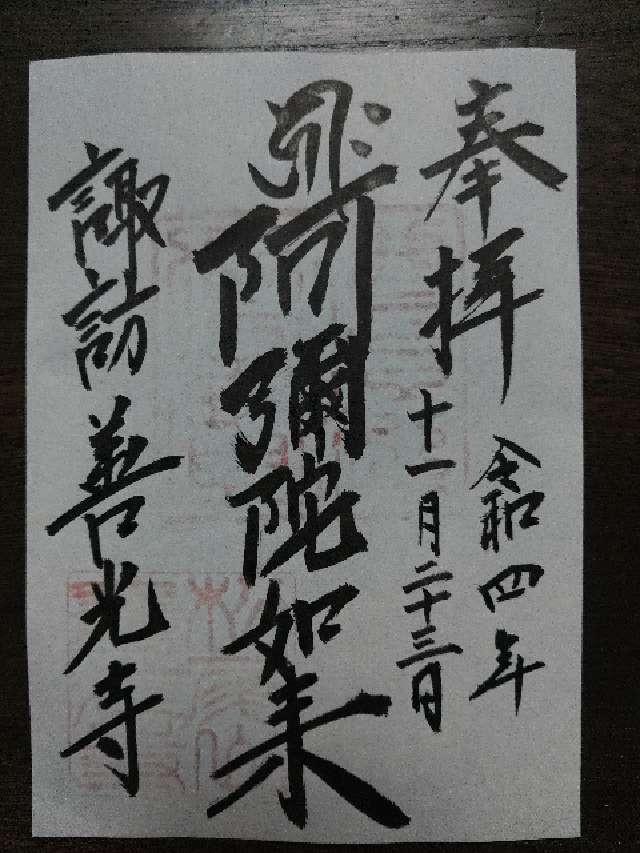 奉拝
令和四年
十一月二十三日
阿彌陀如来
諏訪善光寺